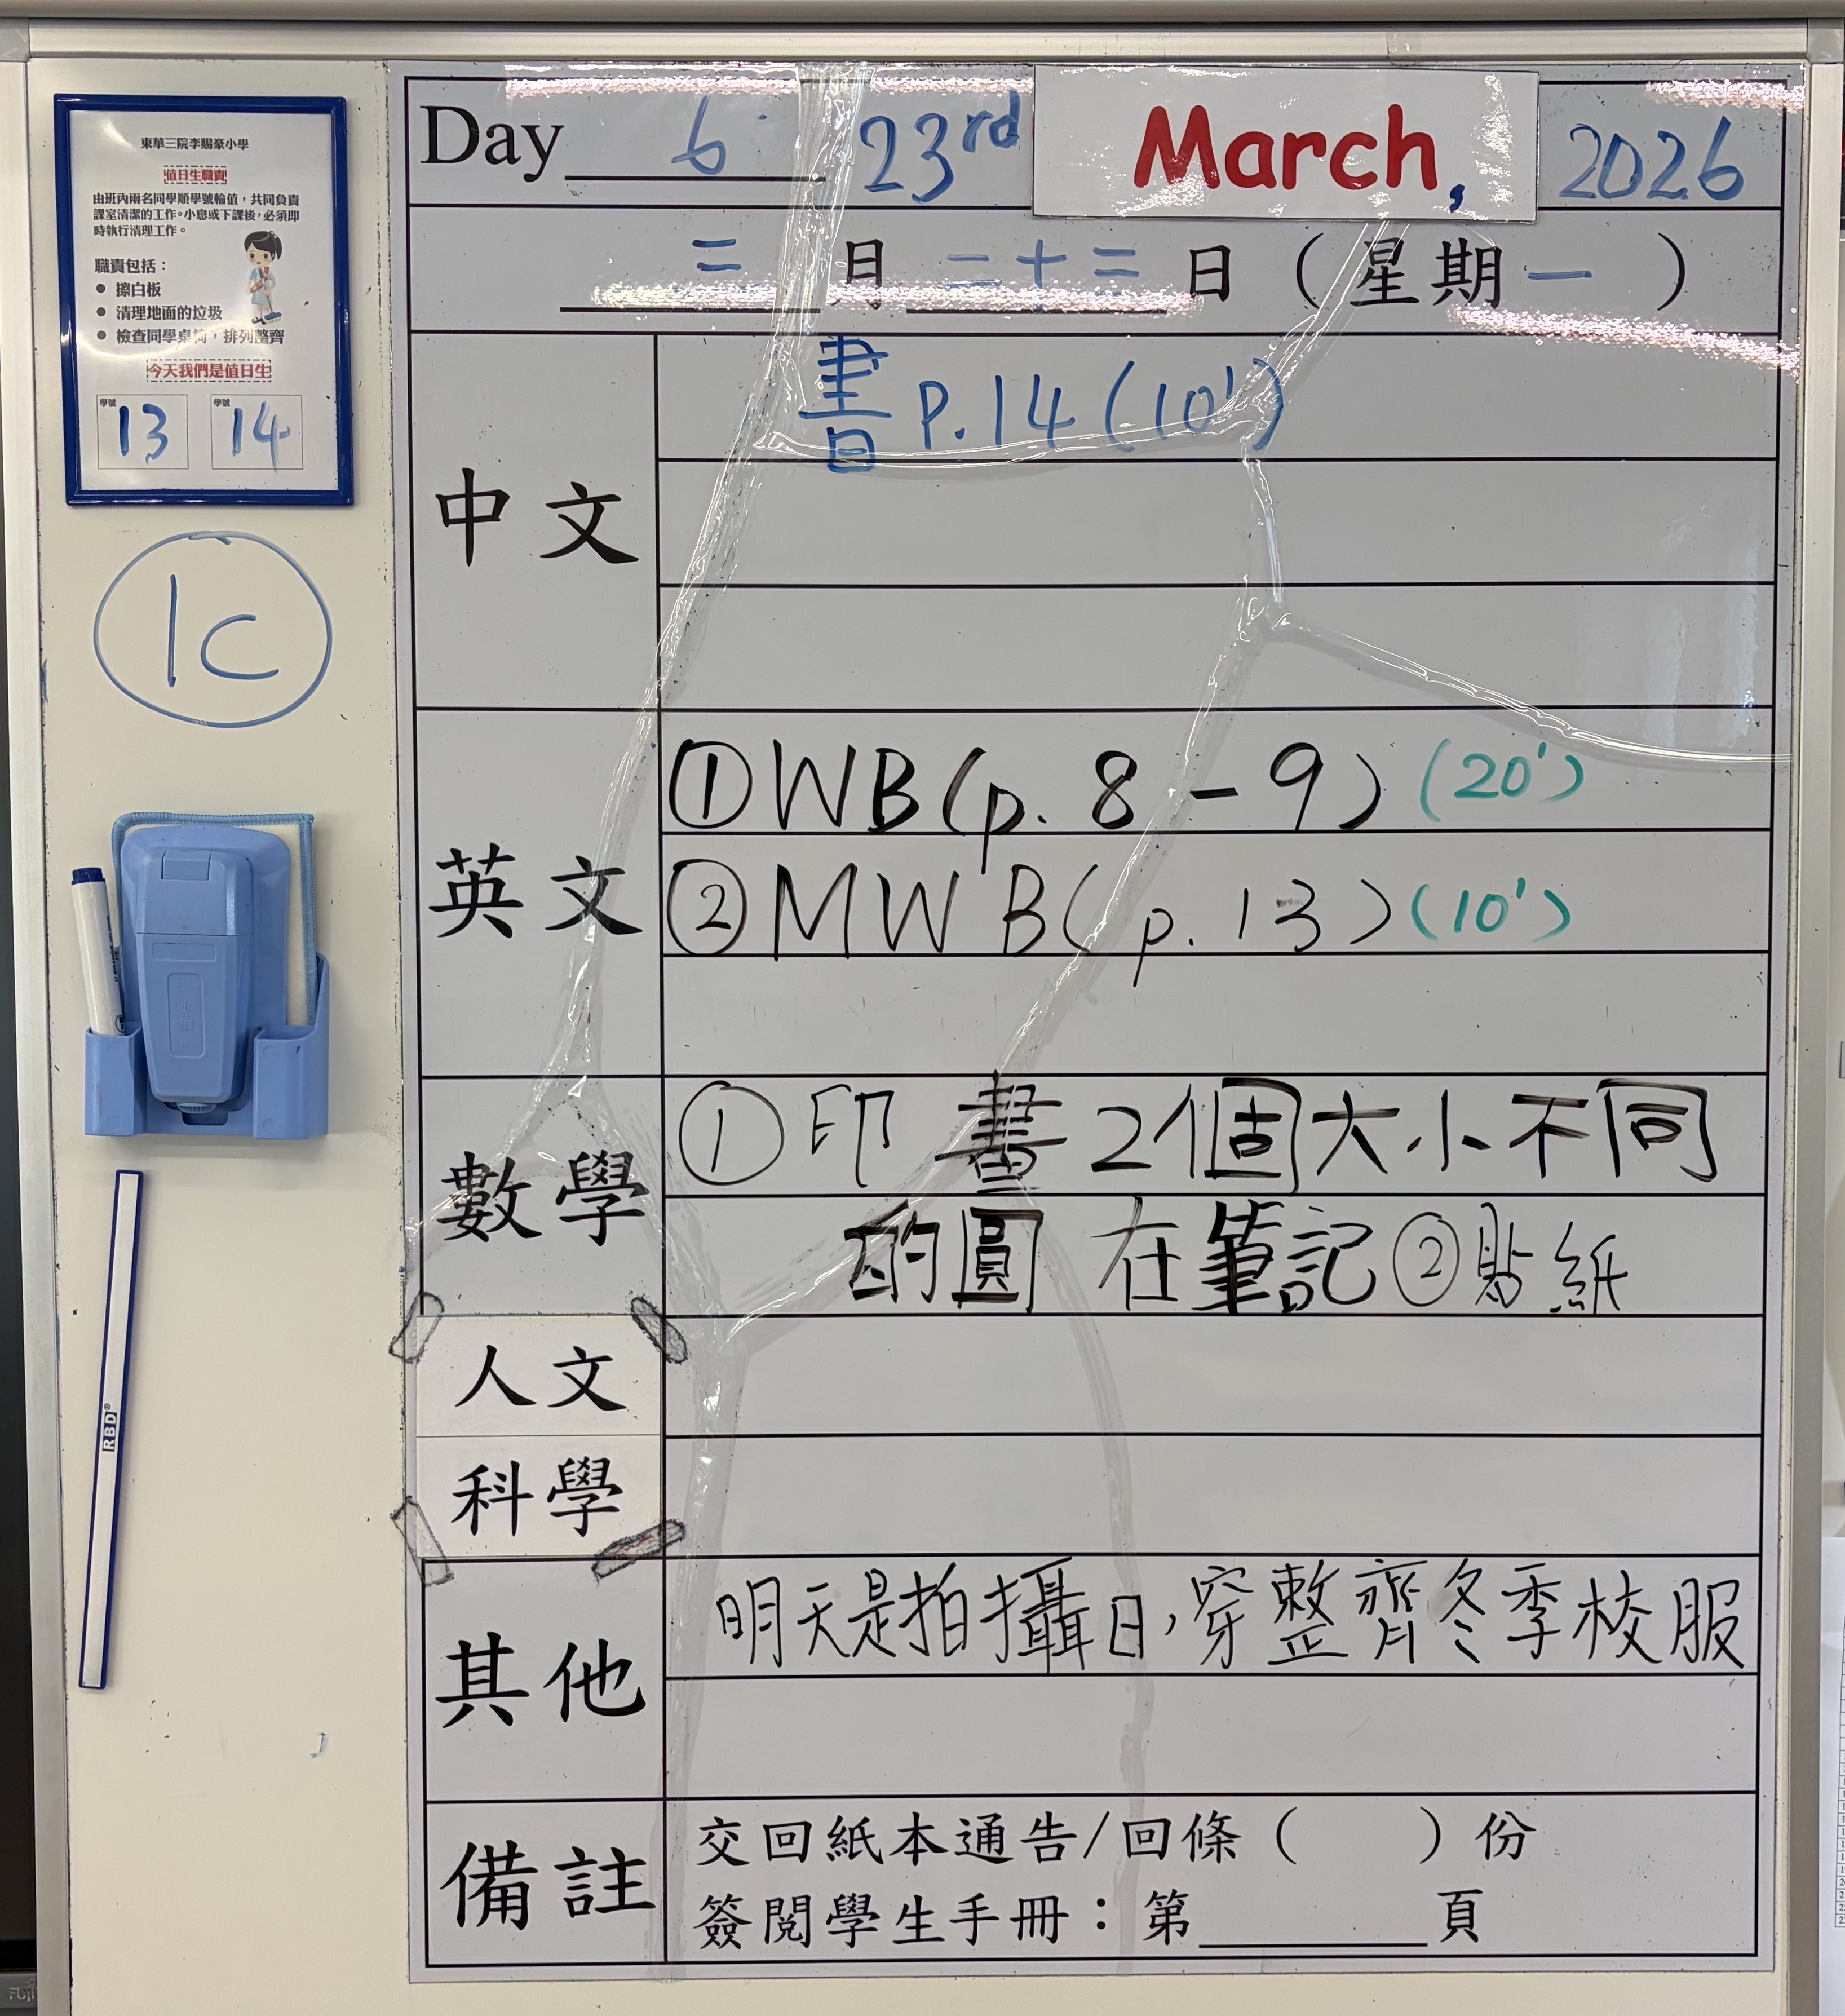 東華三院李賜豪小學
值日生職責
由班內兩名同學順學號輪值，共同負責
課室清潔的工作。小息或下課後，必須即
時執行清理工作。
職責包括：
● 擦白板
● 清理地面的垃圾
● 檢查同學桌椅，排列整齊
今天我們是值日生
學號 13 學號 14
1C
RBD®
Day 6 23rd March, 2026
三月二十三日（星期一）
中文
書 P.14 (10')
英文
①WB(p. 8 - 9) (20')
②MWB(p. 13) (10')
數學
① 印畫2個大小不同
的圓在筆記 ②貼紙
人文
科學
其他
明天是拍攝日，穿整齊冬季校服
備註
交回紙本通告/回條（ ）份
簽閱學生手冊：第______頁